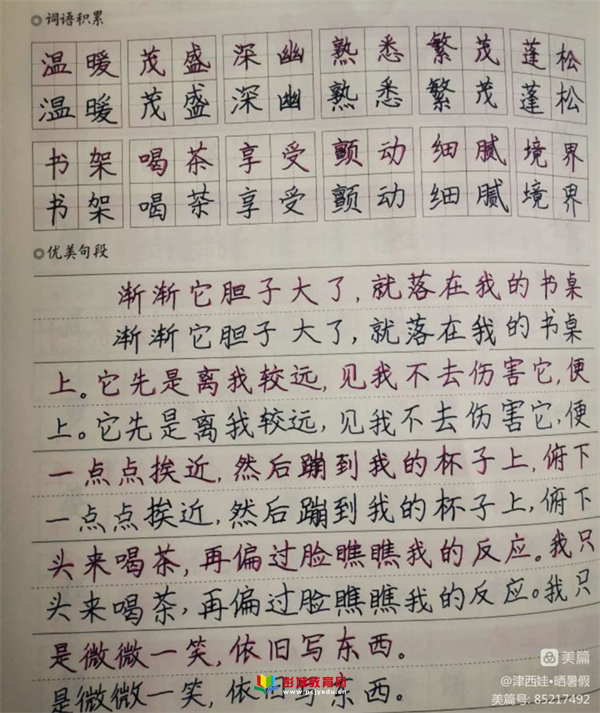 词语积累
温暖 茂盛 深幽 熟悉 繁茂 蓬松
温暖 茂盛 深幽 熟悉 繁茂 蓬松
书架 喝茶 享受 颤动 细腻 境界
书架 喝茶 享受 颤动 细腻 境界
优美句段
渐渐它胆子大了，就落在我的书桌
渐渐它胆子大了，就落在我的书桌
上。它先是离我较远，见我不去伤害它，便
上。它先是离我较远，见我不去伤害它，便
一点点挨近，然后蹦到我的杯子上，俯下
一点点挨近，然后蹦到我的杯子上，俯下
头来喝茶，再偏过脸瞧瞧我的反应。我只
头来喝茶，再偏过脸瞧瞧我的反应。我只
是微微一笑，依旧写东西。
是微微一笑，依旧写东西。
彭城教育网
www.pcjyedu.cn
美篇
@津西娃•晒暑假
美篇号: 85217492